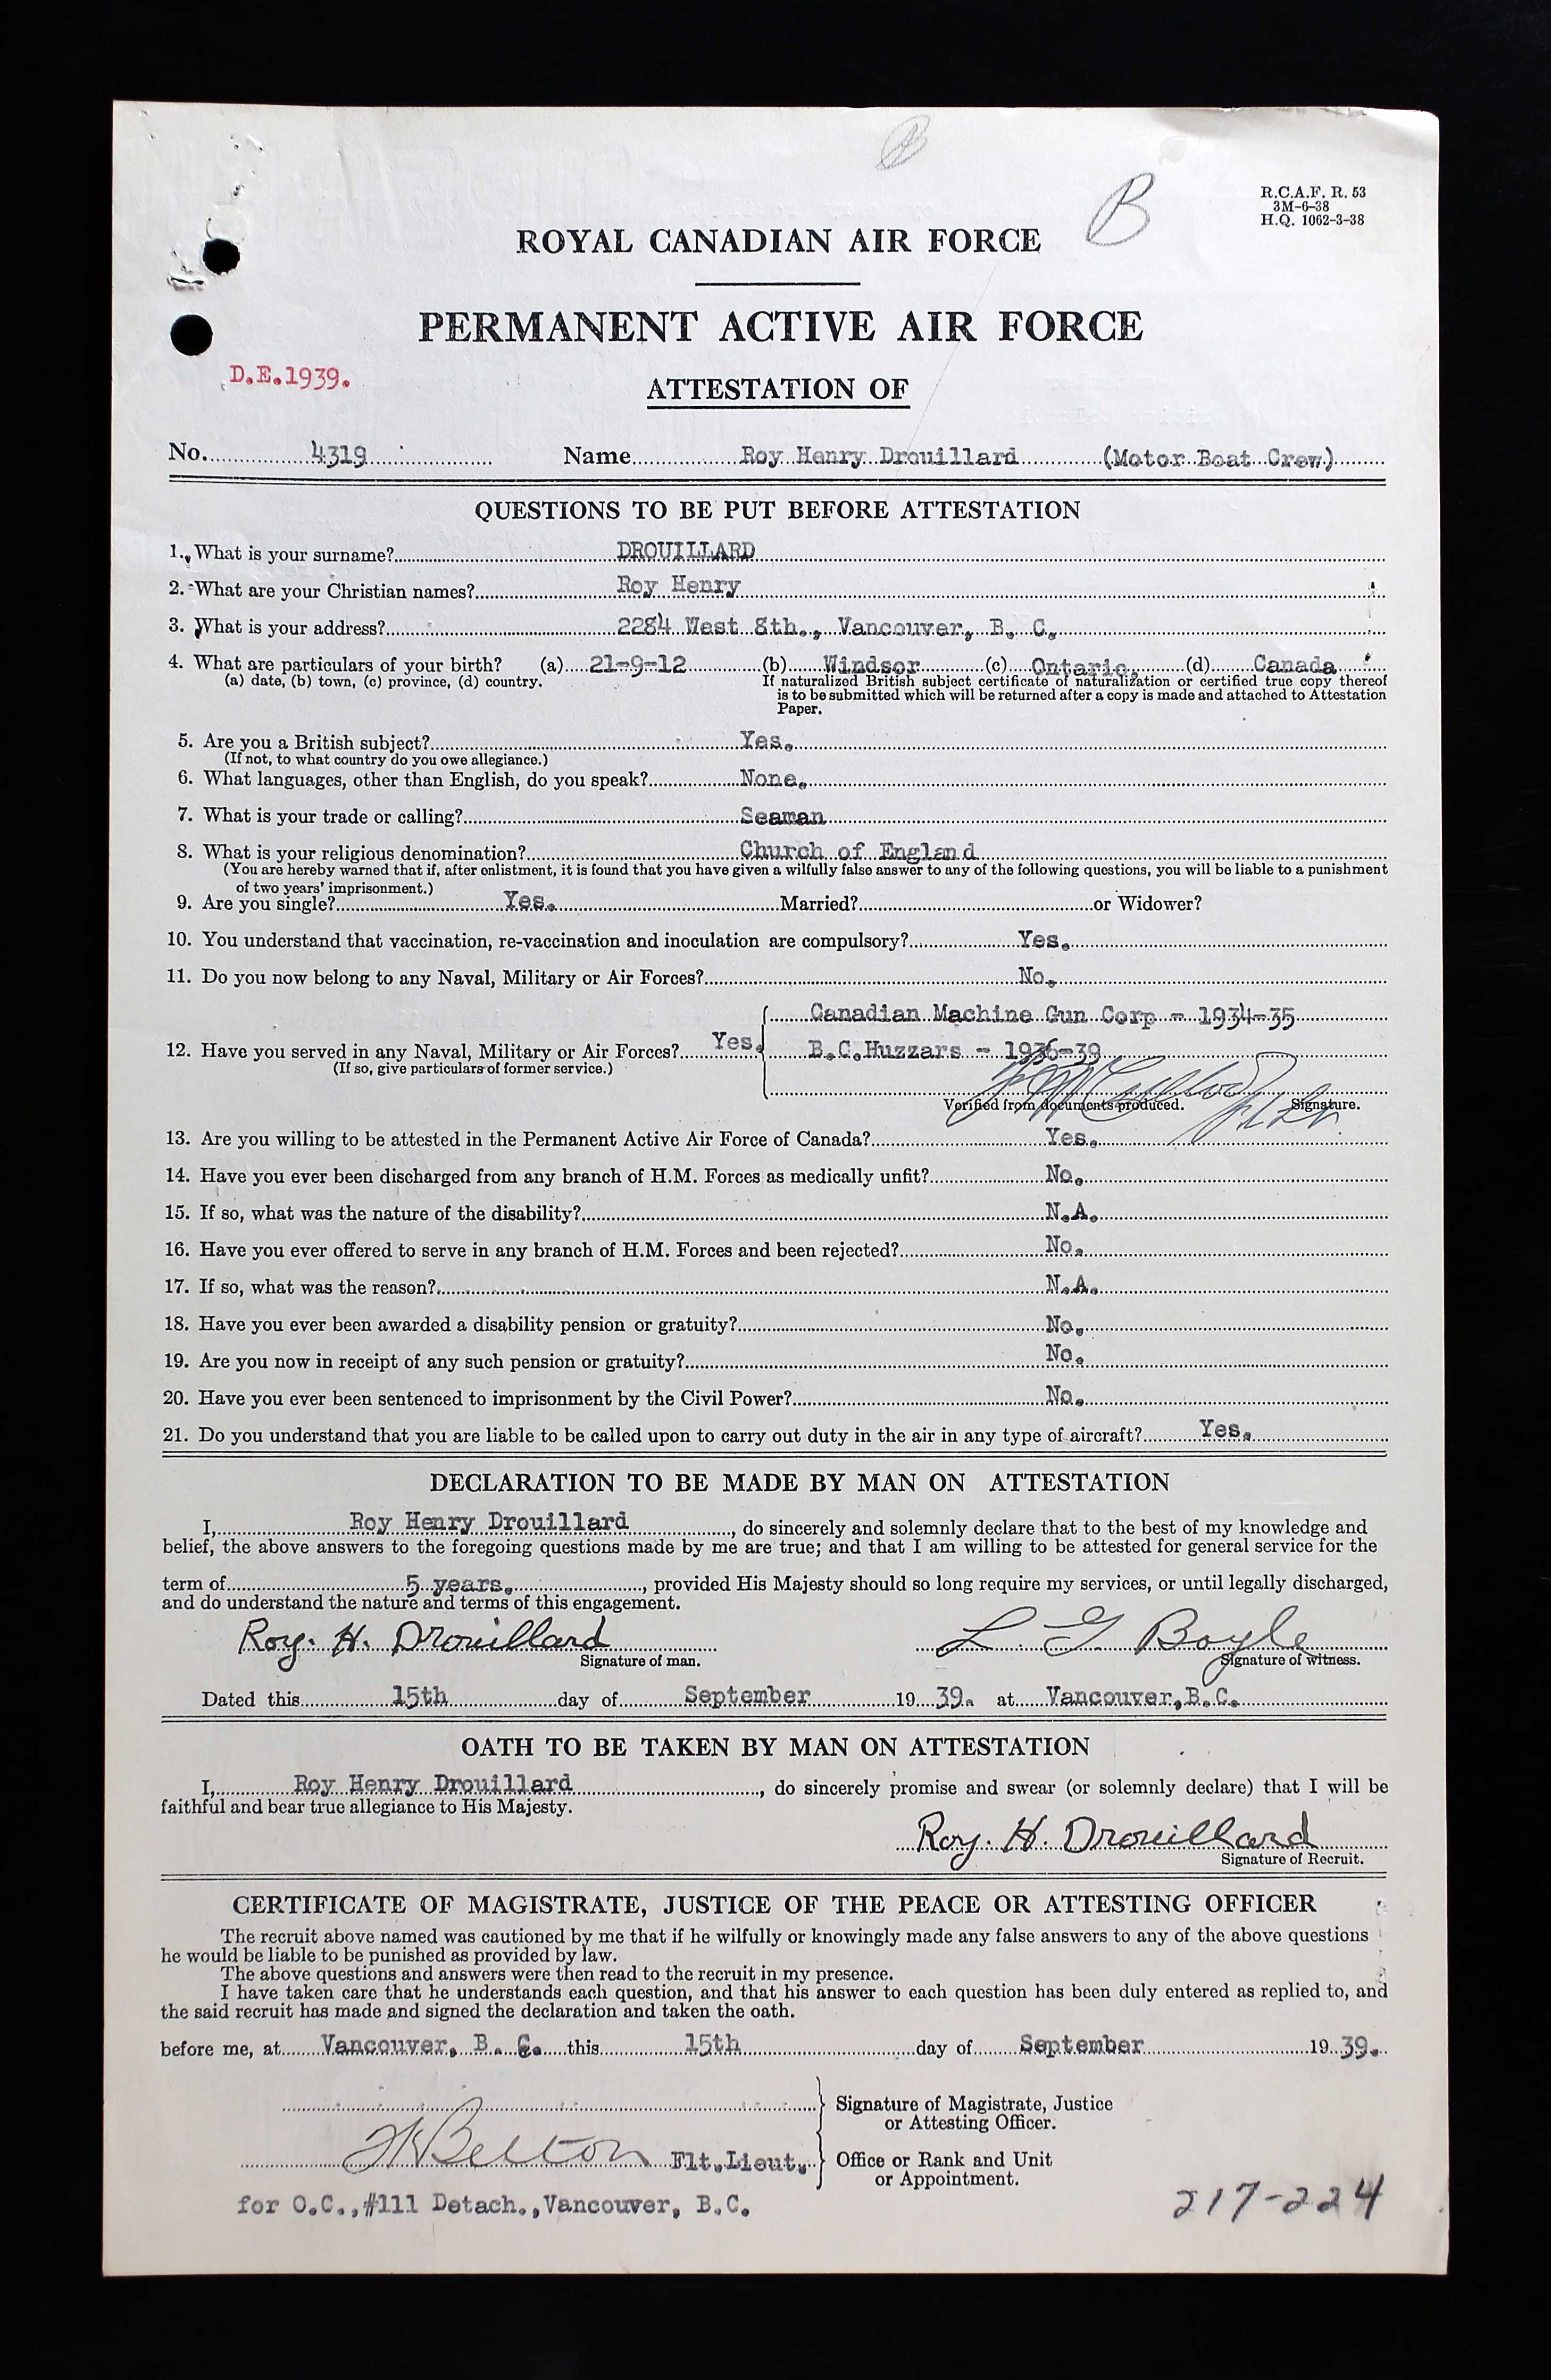 B
R.C.A.F. R. 53
3M-6-38
H.Q. 1062-3-38
ROYAL CANADIAN AIR FORCE
PERMANENT ACTIVE AIR FORCE
D.E.1939.
ATTESTATION OF
No. 4319 Name Roy Henry Drouillard (Motor Boat Crew)
QUESTIONS TO BE PUT BEFORE ATTESTATION
1. What is your surname? DROUILLARD
2. What are your Christian names? Roy Henry
3. What is your address? 2284 West 8th., Vancouver, B. C.
4. What are particulars of your birth? (a) 21-9-12 (b) Windsor (c) Ontario, (d) Canada
(a) date, (b) town, (c) province, (d) country. If naturalized British subject certificate of naturalization or certified true copy thereof
is to be submitted which will be returned after a copy is made and attached to Attestation
Paper.
5. Are you a British subject? Yes.
(If not, to what country do you owe allegiance.)
6. What languages, other than English, do you speak? None.
7. What is your trade or calling? Seaman
8. What is your religious denomination? Church of England
(You are hereby warned that if, after enlistment, it is found that you have given a wilfully false answer to any of the following questions, you will be liable to a punishment
of two years' imprisonment.)
9. Are you single? Yes. Married? or Widower?
10. You understand that vaccination, re-vaccination and inoculation are compulsory? Yes.
11. Do you now belong to any Naval, Military or Air Forces? No.
Canadian Machine Gun Corp - 1934-35
12. Have you served in any Naval, Military or Air Forces? Yes. B.C.Huzzars - 1936-39
(If so, give particulars of former service.)
Verified from documents produced. Signature.
13. Are you willing to be attested in the Permanent Active Air Force of Canada? Yes.
14. Have you ever been discharged from any branch of H.M. Forces as medically unfit? No.
15. If so, what was the nature of the disability? N.A.
16. Have you ever offered to serve in any branch of H.M. Forces and been rejected? No.
17. If so, what was the reason? N.A.
18. Have you ever been awarded a disability pension or gratuity? No.
19. Are you now in receipt of any such pension or gratuity? No.
20. Have you ever been sentenced to imprisonment by the Civil Power? No.
21. Do you understand that you are liable to be called upon to carry out duty in the air in any type of aircraft? Yes.
DECLARATION TO BE MADE BY MAN ON ATTESTATION
I, Roy Henry Drouillard, do sincerely and solemnly declare that to the best of my knowledge and
belief, the above answers to the foregoing questions made by me are true; and that I am willing to be attested for general service for the
term of 5 years., provided His Majesty should so long require my services, or until legally discharged,
and do understand the nature and terms of this engagement.
Roy. H. Drouillard L. G Boyle
Signature of man. Signature of witness.
Dated this 15th day of September 19 39. at Vancouver,B.C.
OATH TO BE TAKEN BY MAN ON ATTESTATION
I, Roy Henry Drouillard, do sincerely promise and swear (or solemnly declare) that I will be
faithful and bear true allegiance to His Majesty.
Roy. H. Drouillard
Signature of Recruit.
CERTIFICATE OF MAGISTRATE, JUSTICE OF THE PEACE OR ATTESTING OFFICER
The recruit above named was cautioned by me that if he wilfully or knowingly made any false answers to any of the above questions
he would be liable to be punished as provided by law.
The above questions and answers were then read to the recruit in my presence.
I have taken care that he understands each question, and that his answer to each question has been duly entered as replied to, and
the said recruit has made and signed the declaration and taken the oath.
before me, at Vancouver, B. C. this 15th day of September 19 39.
Signature of Magistrate, Justice
or Attesting Officer.
Belton Flt.Lieut. Office or Rank and Unit
or Appointment.
for O.C.,#111 Detach.,Vancouver, B.C.
217-224